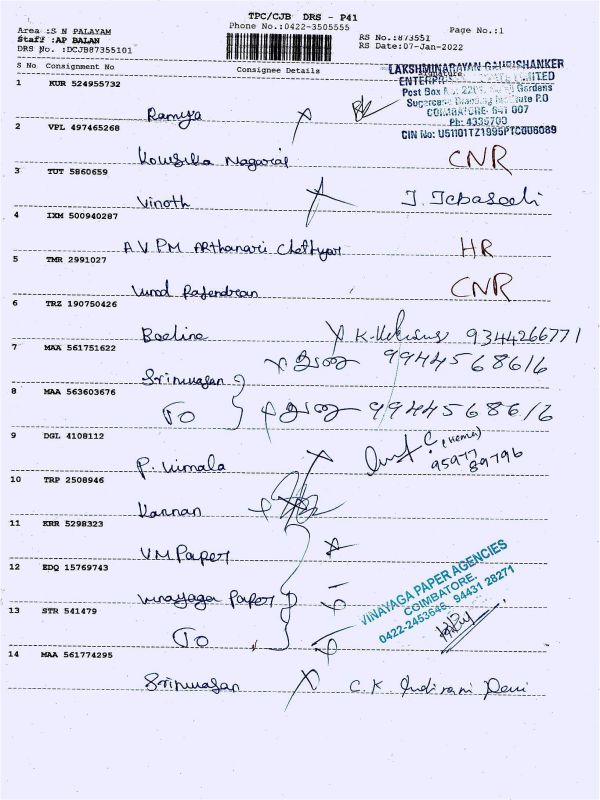 TPC/CJB DRS - P41
Phone No.:0422-3505555
Area :S N PALAYAM
Staff :AP BALAN
DRS No. :DCJB87355101
RS No.:873551
RS Date:07-Jan-2022
Page No.:1
S No Consignment No Consignee Details Signature
LAKSHMINARAYAN GAURISHANKER
ENTERPRISES PRIVATE LIMITED
Post Box No: 2209, Gardens
Sugarcane Breeding Institute P.O
COIMBATORE- 641 007
Ph: 4335700
CIN No: U51101TZ1995PTC006089
1 KUR 524955732
Ramya
2 VPL 497465268
Kowsika Nagaraj CNR
3 TUT 5860659
Vinoth
4 IXM 500940287
A V P M Arthanari Chettyar HR
5 TMR 2991027
Vinod Rajendran CNR
6 TRZ 190750426
Baeline 9344266771
7 MAA 561751622
Srinivasan 9944568616
8 MAA 563603676
To 9944568616
9 DGL 4108112
P. Vimala (Hema) 95977 89796
10 TRP 2508946
Kannan
11 KRR 5298323
V.M Paper
12 EDQ 15769743
Vinayaga Paper
13 STR 541479
To
VINAYAGA PAPER AGENCIES
COIMBATORE.
0422-2453646, 94431 28271
14 MAA 561774295
Srinivasan C.K. Indirani Devi